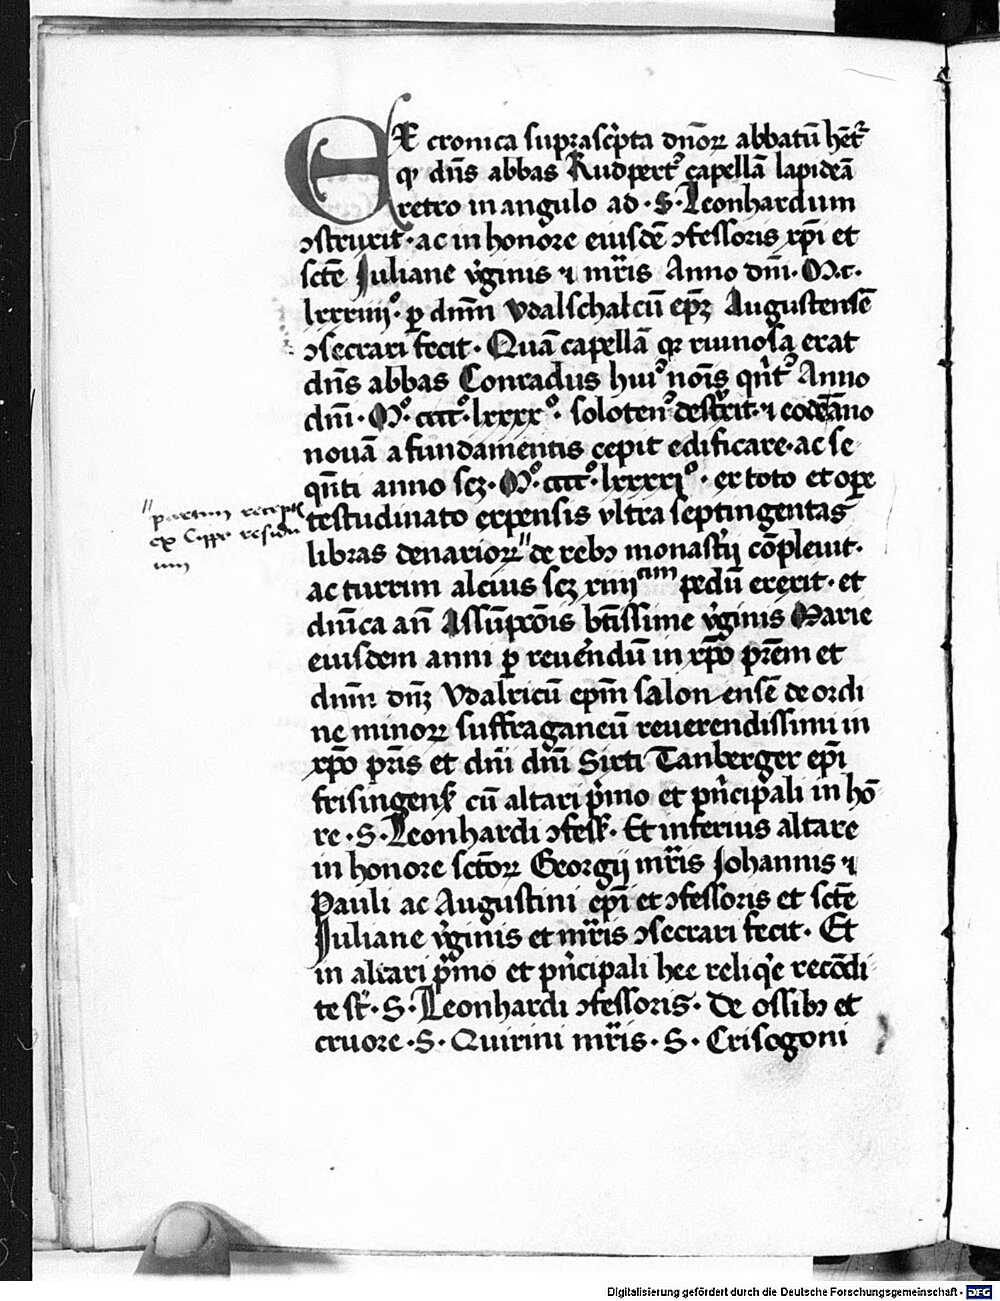 Ex cronica suprascͥpta dn̄oꝝ abbatū hēt̄
qͥ dn̄s abbas Rudpertꝰ capellā lapideā
retro in angulo ad · S · Leonhardum
ↄstruxit · ac in honore eiusdē ↄfessoris xp̄i et
sctē Juliane vͥginis ⁊ mr̄is Anno dn̄i · M · c ·
lxxxiiij° · ꝑ dn̄m Vdalschalcū ep̄ꝫ Augustensē
ↄsecrari fecit · Quā capellā qꝛ ruinosa erat
dn̄s abbas Conradus huiꝰ nōis qͥntꝰ Anno
dn̄i · M° · cccc° · lxxxx° · solotenꝰ destͮxit · ⁊ eodē āno
nouā a fundamentis cepit edificare · ac se
qn̄ti anno scꝫ · M° · cccc° · lxxxxj° · ex toto et oꝑe
testudinato expensis vltra septingentas
"partim receptꝭ
ex Cippo residuū
libras denarioꝝ" de rebꝰ monastͥij cōpleuit ·
ac turrim alcius scꝫ xiiij cim pedū erexit · et
dn̄ica an̄ Assūpcōis btīssime vͥginis Marie
eiusdem anni ꝑ reuēndū in xp̄o pr̄em et
dn̄m dn̄ꝫ Vdalricū epm̄ salonensē de ordi
ne minoꝝ suffraganeū reuerendissimi in
xp̄o pr̄is et dn̄i dn̄i Sixti Tanberger ep̄i
frisingenꝭ cū altari pͥmo et pͥncipali in hō
re · S · Leonhardi ↄfessꝭ · Et inferius altare
in honore sctōꝝ Georgij mr̄is Johannis ⁊
Pauli ac Augustini ep̄i et ↄfessoris et sctē
Juliane vͥginis et mr̄is ↄsecrari fecit · Et
in altari pͥmo et pͥncipali hee reliqͥe recōdi
te st̄ · S · Leonhardi ↄfessoris · De ossibꝰ et
cruore · S · Quirini mr̄is · S · Crisogoni
Digitalisierung gefördert durch die Deutsche Forschungsgemeinschaft - DFG